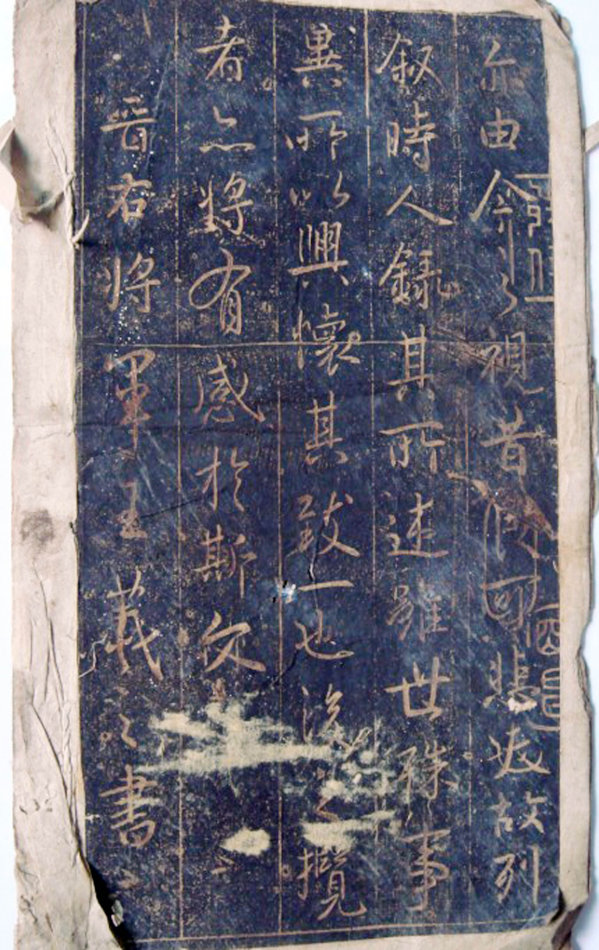 亦由今之視昔可悲夫故列
叙時人錄其所述雖世殊事
異所以興懷其致一也後之攬
者亦將有感於斯文
晉右將軍王羲之書